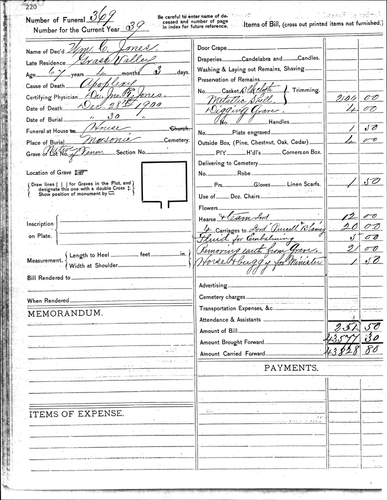 220
Number of Funeral 369
Number for the Current Year 39
Be careful to enter name of deceased and number of page in index for future reference.
Items of Bill, (cross out printed items not furnished.)
Name of Dec'd Wm. C. Jones
Late Residence Grass Valley
Age 67 years months 3 days
Cause of Death Apoplexy
Certifying Physician Dr. Jones
Date of Death Dec 28th 1900
Date of Burial " 30 "
Funeral at House Church.
Place of Burial Masonic Cemetery.
Grave or Lot No. Section No.
Location of Grave
Draw lines for Graves in the Plot, and designate this one with a double Cross
Show position of monument by
Inscription on Plate.
Measurement. Length to Heel feet in.
Width at Shoulder
Bill Rendered to
When Rendered
MEMORANDUM.
ITEMS OF EXPENSE.
Door Crape
Draperies Candelabra and Candles.
Washing & Laying out Remains, Shaving
Preservation of Remains
No. Casket, Trimming.
Metallic 200 00
Digging Grave 4 00
No. Handles
No. Plate engraved 1 50
Outside Box, (Pine, Chestnut, Oak, Cedar) 4 00
No. P/Y H'dl's Corners on Box.
Delivering to Cemetery
No. Robe
Prs. Gloves Linen Scarfs. 1 50
Use of Doz. Chair
Flowers
Hearse & Team 12 00
4 Carriages to 20 00
Fluid for Embalming 5 00
Removing earth from Grave 2 00
Horse & buggy for Minister 1 50
Advertising
Cemetery charges
Transportation Expenses, &c
Attendance & Assistants
Amount of Bill 251 50
Amount Brought Forward 43577 30
Amount Carried Forward 43828 80
PAYMENTS.